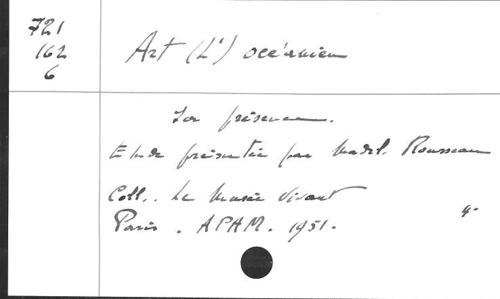 721
162
6
Art (L') océanien
Sa présence.
Etude présentée par Madel. Rousseau
Coll.. Le Musée Vivant
Paris. APAM. 1951.